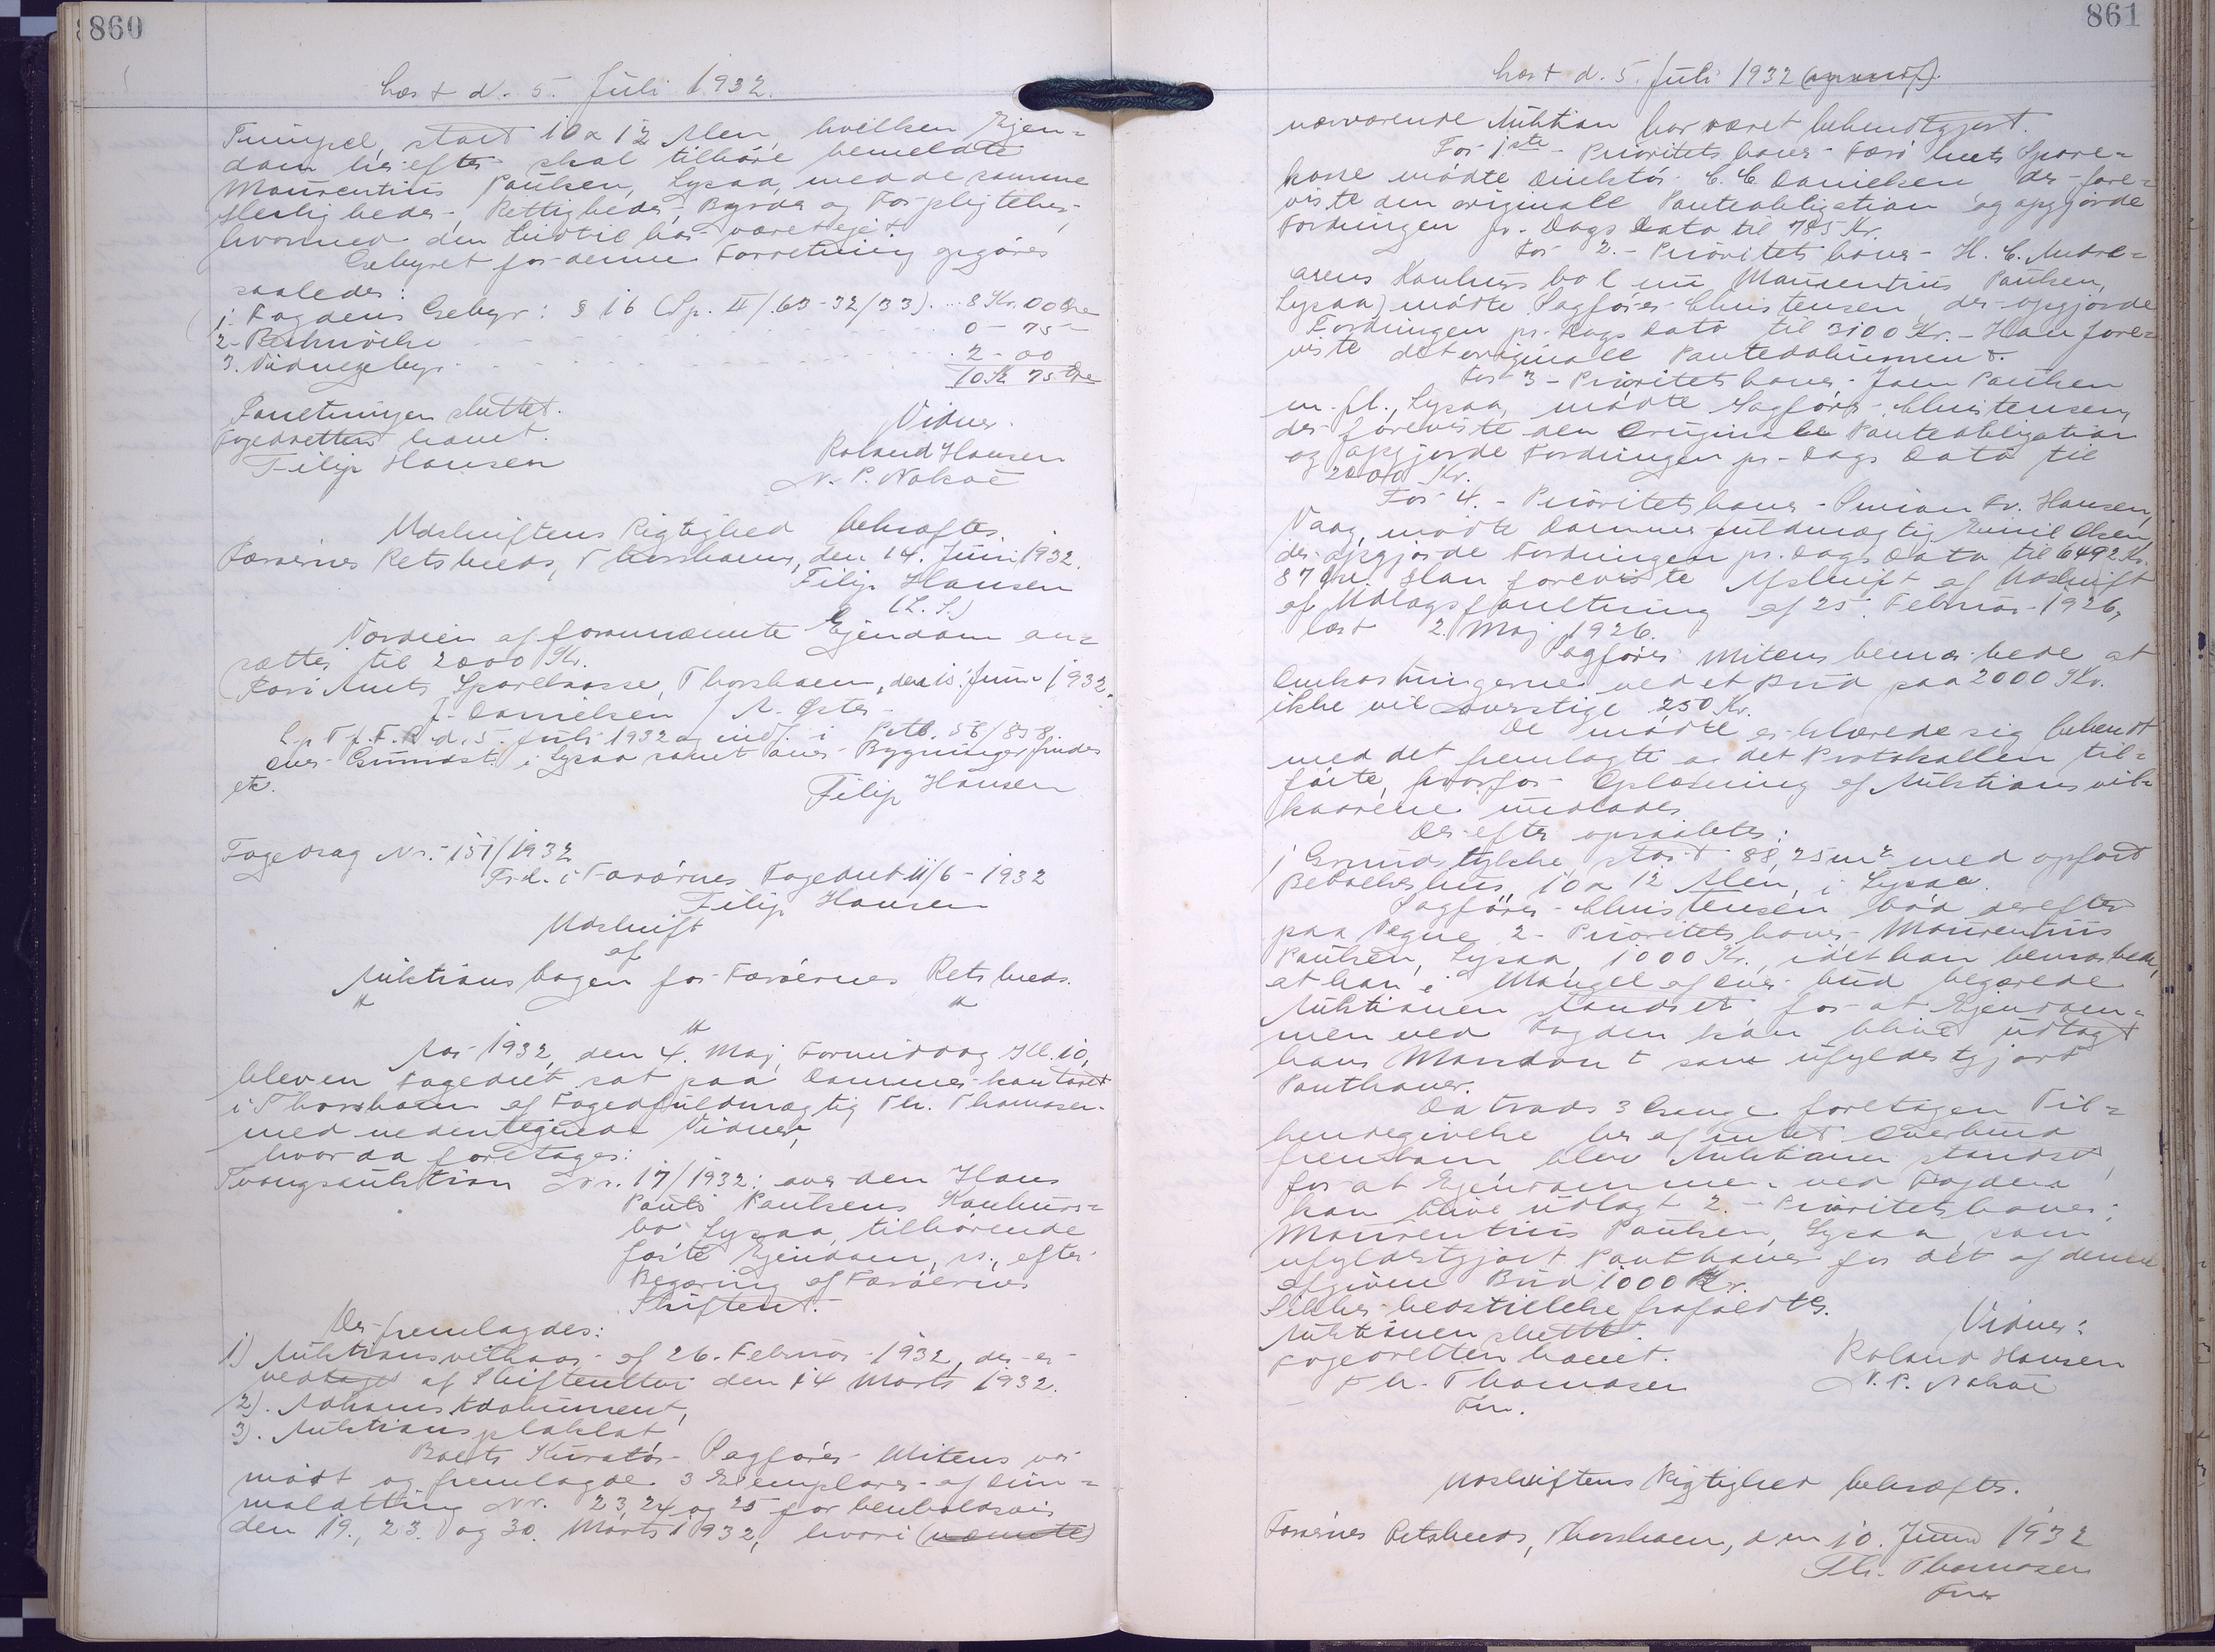 860
Læst d. 5. Juli 1932.
Tuimpel, stort 10 x 12 Alen, hvilken Ejen=
dom herefter skal tilhøre bemeldte
Maurentius Paulsen, Lysaa, med de samme
Herligheder, Rettigheder, Byrder og Forpligtelser,
hvormed den hidtil har været ejet
Gebyret for denne Forretning opgøres
saaledes:
1. Fogdens Gebyr: § 16 (Sp. II/63-32/33). ... 8 Kr. 00 Øre
2. Beskrivelse 0 - 75 -
3. Vidnegebyr 2 - 00
10 Kr 75 Øre
Forretningen sluttet.
Fogedretten hævet.
Filip Hansen
Vidner.
Roland Hansen
N. P. Nolsøe
Udskriftens Rigtighed bekræftes.
Færøernes Retskreds, Thorshavn, den 14. Juni 1932.
Filip Hansen
(L. S.)
Værdien af fornævnte Ejendom an=
sættes til 2000 Kr.
Færø Amts Sparekasse, Thorshavn, den 15. Juni 1932.
J. Danielsen / A. Øster
L. p. T. f. F. R. d. 5. Juli 1932 og indf. i Pctb. 56/858.
over Grundst. i Lysaa samt over Bygninger findes
etc.
Filip Hansen
Fogedsag Nr. 151/1932
Frd. i Færøernes Fogedret 11/6 - 1932
Filip Hansen
Udskrift
af
Auktionsbogen for Færøernes Retskreds.
Aar 1932, den 4. Maj, Formiddag Kl. 10,
blev en Fogedret sat paa Dommerkontoret
i Thorshavn af Fogedfuldmægtig Th. Thomasen
med nedentegnede Vidner,
hvor da foretoges:
Tvangsauktion Nr. 17/1932: over den Hans
Pauli Paulsens Konkurs=
bo Lysaa, tilhørende
faste Ejendom, s., efter
Begæring af Færøernes
Skifteret.
Der fremlagdes:
1) Auktionsvilkaar af 26. Februar 1932, der er
vedtaget af Skifteretten den 14 Marts 1932.
2). Adkomstdokument,
3). Auktionsplakat
Boets Kurator Sagfører Mitens var
mødt og fremlagde 3 Exemplarer af Dim=
malætting Nr. 23, 24 og 25 for henholdsvis
den 19., 23. og 30. Marts 1932, hvori (nævnte)
861
Læst d. 5. Juli 1932
nærværende Auktion har været bekendtgjort.
For 1ste Prioritetshaver Færø Amts Spare=
kasse mødte Direktør C. C. Danielsen, der fore=
viste den originale Panteobligation og opgjorde
Fordringen pr. Dags Dato til 785 Kr.
For 2. Prioritetshaver H. C. Andre=
asens Konkursbo (nu Maurentius Paulsen,
Lysaa) mødte Sagfører Christensen, der opgjorde
Fordringen pr. Dags Dato til 3100 Kr. Han fore=
viste det originale Pantedokument.
For 3 Prioritetshaver Joen Paulsen
m. fl., Lysaa, mødte Sagfører Christensen,
der foreviste den originale Panteobligation
og opgjorde Fordringen pr. Dags Dato til
2000 Kr.
For 4. Prioritetshaver Simon Fr. Hansen,
Vaag, mødte Dommerfuldmægtig Emil Olsen,
der opgjorde Fordringen pr. Dags Dato til 6492 Kr.
87 Øre. Han foreviste Afskrift af Udskrift
af Udlægsforretning af 25. Februar 1926,
læst 2. Maj 1926.
Sagfører Mitens bemærkede at
Omkostningerne ved et Bud paa 2000 Kr.
ikke vil overstige 250 Kr.
De mødte erklærede sig bekendt
med det fremlagte og det Protokollen til=
førte, hvorfor Oplæsning af Auktionsvil=
kaarene undlodes.
Derefter opraabtes:
1 Grundstykke stort 88,25 m² med opført
Beboelseshus, 10 x 12 Alen, i Lysaa.
Sagfører Christensen bød derefter
paa Vegne 2. Prioritetshaver Maurentius
Paulsen, Lysaa, 1000 Kr., idet han bemærkede,
at han i Mangel af over bud begærede
Auktionen standset, for at Ejendom=
men ved Fogden kan blive udlagt
hans Mandant som ufyldestgjort
Panthaver.
Da trods 3 Gange foretagen Til=
kendegivelse her af intet Overbud
fremkom, blev Auktionen standset,
for at Ejendommen ved Fogden
kan blive udlagt 2. Prioritetshaver,
Maurentius Paulsen, Lysaa, som
ufyldestgjort Panthaver for det af denne
afgivne Bud 1000 Kr.
Sikkerhedsstillelse frafaldtes.
Auktionen sluttet.
Fogedretten hævet.
Th. Thomasen
Fm.
Vidner:
Roland Hansen
N. P. Nolsøe
Udskriftens Rigtighed bekræftes.
Færøernes Retskreds, Thorshavn, den 10. Juni 1932
Th. Thomasen
Fm